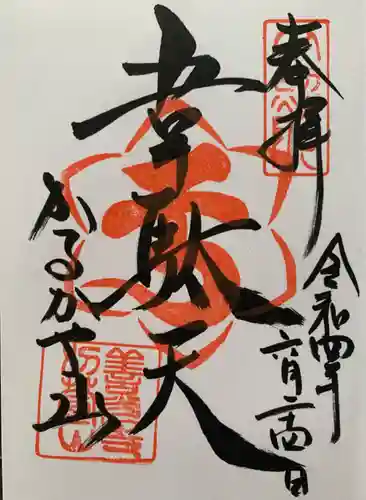 奉拝
令和四年
六月二十四日
韋駄天
かるかや山